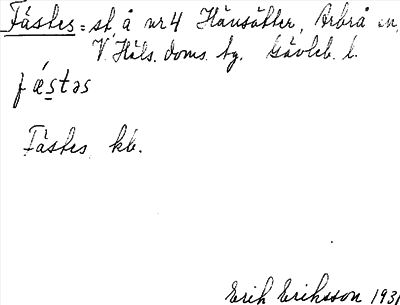 Fästes = st. å nr 4 Hänsätter, Arbrå sn,
V. Häls. doms. tg. Gävleb. l.
fǽstəs
Fästes, kb.
Erik Eriksson 1931